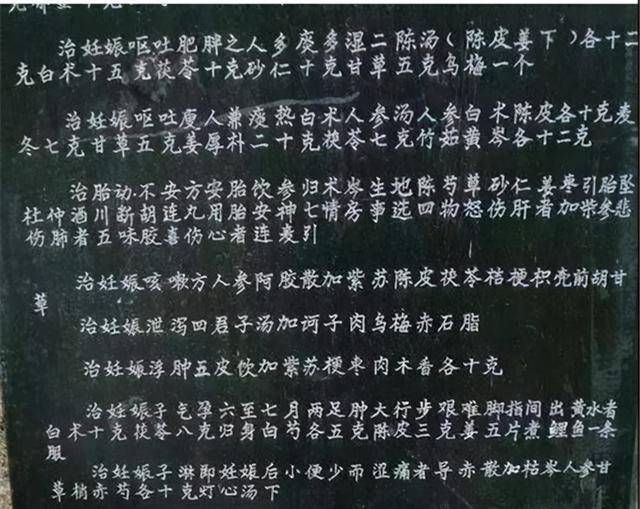 治妊娠呕吐肥胖之人多痰多湿二陈汤(陈皮姜下)各十二
克白术十五克茯苓十克砂仁十克甘草五克乌梅一个
治妊娠呕吐廋人兼痰热白术人参汤人参白术陈皮各十克麦
冬七克甘草五克姜厚朴二十克茯苓七克竹茹黄岑各十二克
治胎动不安方安胎饮参归术岑生地陈芍草砂仁姜枣引胎坠
杜仲酒川断胡连丸用胎安神七情房事选四物怒伤肝者加柴参悲
伤肺者五味胶喜伤心者连麦引
治妊娠咳嗽方人参阿胶散加紫苏陈皮茯苓桔梗积壳前胡甘
草
治妊娠泄泻四君子汤加诃子肉乌梅赤石脂
治妊娠浮肿五皮饮加紫苏梗枣肉木香各十克
治妊娠子气孕六至七月两足肿大行步艰难脚指间出黄水者
白术十克茯苓八克归身白芍各五克陈皮三克姜五片煮鲤鱼一条
服
治妊娠子淋即妊娠后小便少而涩痛者导赤散加枯岑人参甘
草梢赤芍各十克灯心汤下